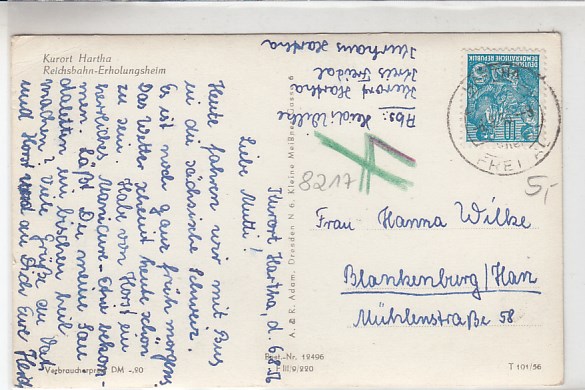 Kurort Hartha
Reichsbahn-Erholungsheim
Kurort Hartha, d. 6.8.56
Liebe Mutti!
Heute fahren wir mit Bus
in die sächsische Schweiz.
Es ist noch ganz früh morgens
Das Wetter scheint heute schön
zu sein. Habe von Horst ein
herrliches Maniküre-Etui bekom-
men. Läßt Du meine San
daletten ein bischen heil
machen? Viele Grüße an Vati
und Horst und an Dich Eure Heidi
Verbraucherpreis DM -.20
Abs: Heidi Wilke
Kurort Hartha
Kreis Freital
Kurhaus Hartha
A. & R. Adam, Dresden N 6, Kleine Meißner Gasse 6
Best.-Nr. 12496
DEUTSCHE
DEMOKRATISCHE REPUBLIK
FREI
8217
5,-
Frau Hanna Wilke
Blankenburg/Harz
Mühlenstraße 58
T 101/56